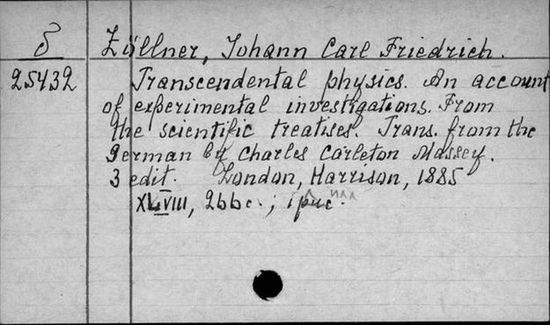 δ Zöllner, Johann Carl Friedrich.
25432 Transcendental physics. An account
of experimental investigations. From
the scientific treatises. Trans. from the
German by Charles Carleton Massey.
3 edit. London, Harrison, 1885
XLVIII, 266c.;